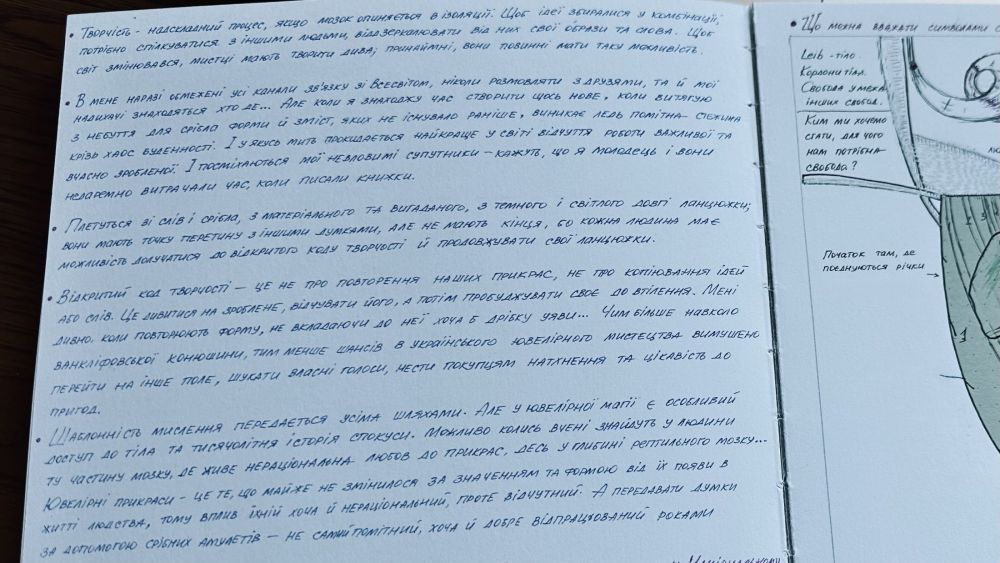 • Творчість - надскладний процес, якщо мозок опиняється в ізоляції. Щоб ідеї збиралися у комбінації,
потрібно спілкуватися з іншими людьми, віддзеркалювати від них свої образи та слова. Щоб
світ змінювався, мистці мають творити дива; принаймні, вони повинні мати таку можливість.
• В мене наразі обмежені усі канали зв'язку зі Всесвітом, ніколи розмовляти з друзями, та й мої
надихачі знаходяться хто де... Але коли я знаходжу час створити щось нове, коли витягую
з небуття для срібла форми й зміст, яких не існувало раніше, виникає ледь помітна стежина
крізь хаос буденності. І у якусь мить прокидається найкраще у світі відчуття роботи важливої та
вчасно зробленої. І посміхаються мої невловимі супутники - кажуть, що я молодець і вони
недаремно витрачали час, коли писали книжки.
• Плетуться зі слів і срібла, з матеріального та вигаданого, з темного і світлого довгі ланцюжки;
вони мають точку перетину з іншими думками, але не мають кінця, бо кожна людина має
можливість долучатися до відкритого коду творчості й продовжувати свої ланцюжки.
• Відкритий код творчості — це не про повторення наших прикрас, не про копіювання ідей
або слів. Це дивитися на зроблене, відчувати його, а потім пробуджувати своє до втілення. Мені
дивно, коли повторюють форму, не вкладаючи до неї хоча б дрібку уяви... Чим більше навколо
ванкліфовської конюшини, тим менше шансів в українського ювелірного мистецтва вимушено
перейти на інше поле, шукати власні голоси, нести покупцям натхнення та цікавість до
пригод.
• Шаблонність мислення передається усіма шляхами. Але у ювелірної магії є особливий
доступ до тіла та тисячолітня історія спокуси. Можливо колись вчені знайдуть у людини
ту частину мозку, де живе нераціональна любов до прикрас, десь у глибині рептильного мозку...
Ювелірні прикраси - це те, що майже не змінилося за значенням та формою від їх появи в
житті людства, тому вплив їхній хоча й нераціональний, проте відчутний. А передавати думки
за допомогою срібних амулетів — не самий помітний, хоча й добре відпрацьований роками
• Що можна вважати символами
Leib - тіло.
Кордони тіла.
Свобода у межах
інших свобод.
Ким ми хочемо
стати, для чого
нам потрібна
свобода?
Початок там, де
поєднуються річки
1